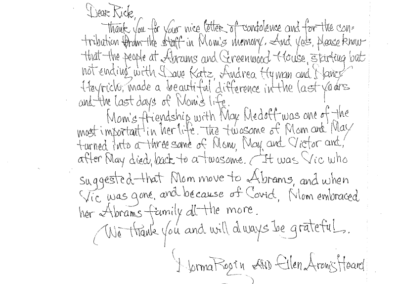 Dear Rick,
Thank you for your nice letter of condolence and for the con-
tribution from the staff in Mom's memory. And yes, please know
that the people at Abrams and Greenwood House, starting but
not ending with Dave Katz, Andrea Hyman and
Heyrich, made a beautiful difference in the last years
and the last days of Mom's life.
Mom's friendship with May Medoff was one of the
most important in her life. The twosome of Mom and May
turned into a threesome of Mom, May and Victor and,
after May died, back to a twosome. It was Vic who
suggested that Mom move to Abrams, and when
Vic was gone, and because of Covid, Mom embraced
her Abrams family all the more.
We thank you and will always be grateful.
Norma AND Ellen